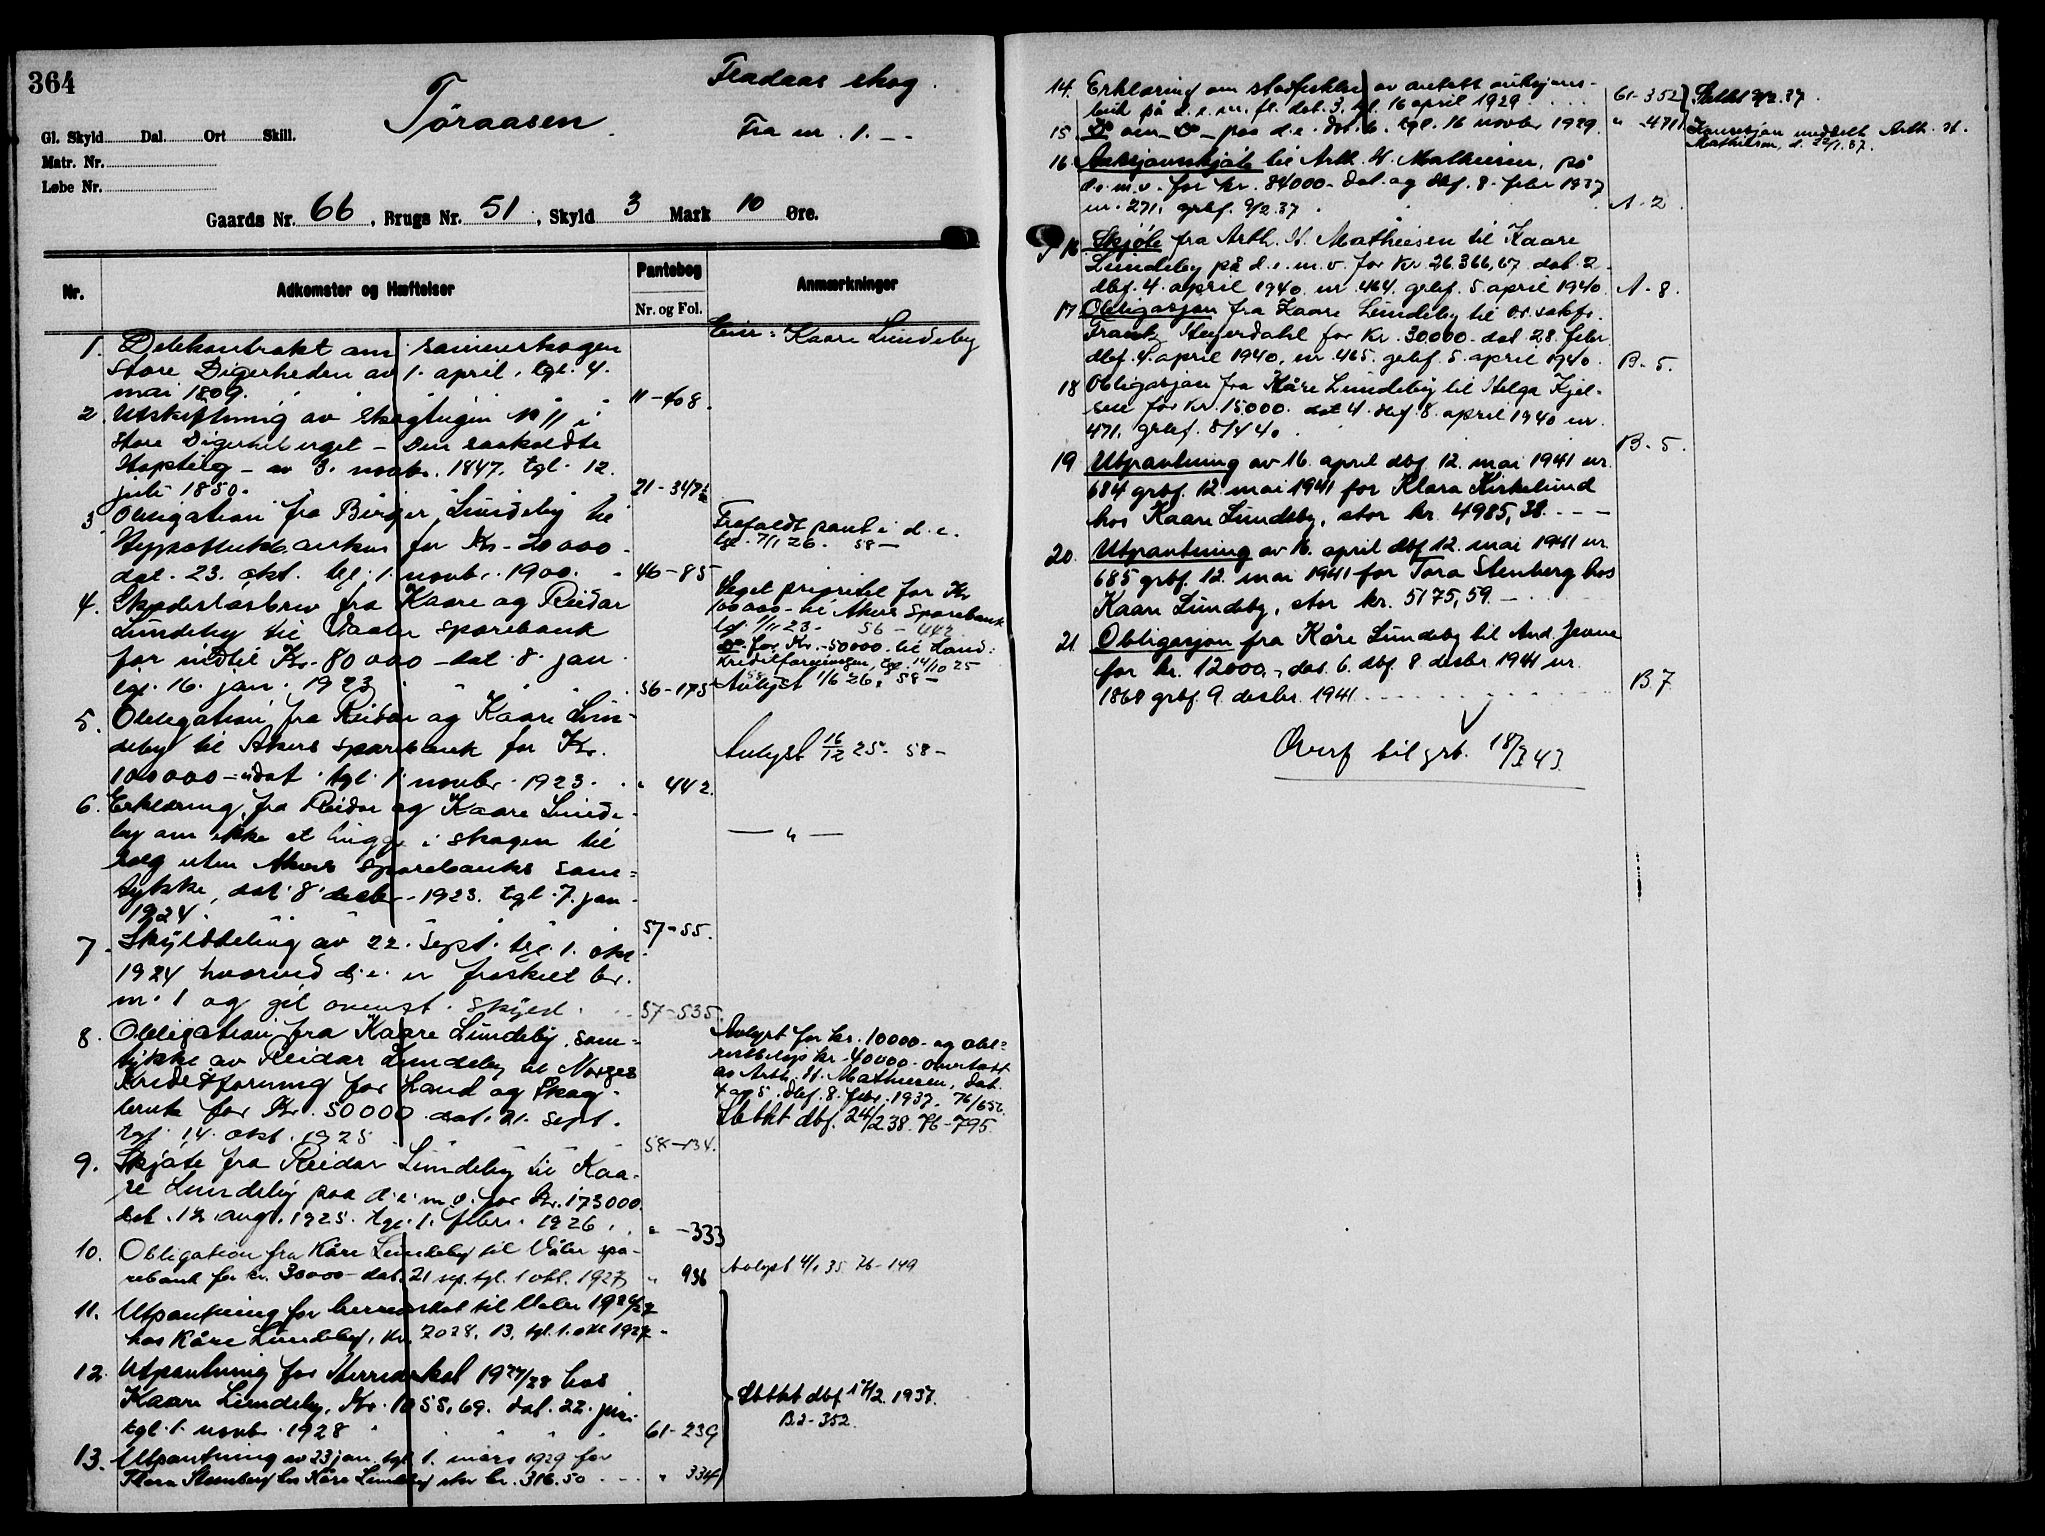 364
Tøraasen
Fladaas skog.
Fra nr. 1. - -
Gl. Skyld Dal. Ort Skill.
Matr. Nr.
Løbe Nr.
Gaards Nr. 66, Brugs Nr. 51, Skyld 3 Mark 10 Øre.
Nr. Adkomster og Hæftelser Pantebog Anmærkninger
Nr. og Fol.
Eier: Kaare Lundeby
1. Delekontrakt om sameieskogen
Store Digerheden av 1. april, tgl. 4.
mai 1809. 11-408.
2. Utskiftning av skogteigen № 11 i
Store - Den saakaldte
- av 3. novbr. 1847. tgl. 12.
juli 1850. 21-347
3. Obligation fra Birger Lundeby til
Hypotekbanken for Kr. 20000
dat. 23. okt. tgl. 1. novbr. 1900. 46-85
Frafaldt pant i d.e.
tgl. 7/1 26. 58-
4. Skadesløsbrev fra Kaare og Reidar
Lundeby til Vaaler sparebank
for indtil Kr. 80000 - dat. 8. jan.
tgl. 16. jan. 1923 56-175
Veget prioritet for Kr.
100000 - til Akers Sparebank
tgl. 1/11 23. 56-442.
Do. for Kr. 50000 til Land:
kreditforeningen, tgl. 14/10 25
Avlyst 1/6 26. 58-
5. Obligation fra Reidar og Kaare Lun-
deby til Akers sparebank for Kr.
100000 - udat. tgl. 1. novbr. 1923. " 442.
Avlyst 16/12 25. 58-
6. Erklæring fra Reidar og Kaare Lunde-
by om ikke at hugge i skogen til
salg uten Akers Sparebanks sam=
tykke, dat. 8 desbr. 1923. tgl. 7. jan.
1924. 57-55.
— " —
7. Skylddeling av 22. sept. tgl. 1. okt.
1924 hvorved d.e. er fraskilt br.
nr. 1 og git ovenst. skyld. 57-535.
8. Obligation fra Kaare Lundeby, sam-
tykke av Reidar Lundeby til Norges
Kreditforening for Land og Skog-
bruk for Kr. 50000 dat. 21. sept.
tgl. 14. okt. 1925 58-134.
Avlyst for kr. 10000 - og obl=
restbeløp kr. 40000 - overtatt
av Arth. H. Mathiesen, dat.
4 og 5. dbf. 8. febr. 1937. 76/652.
Slettet dbf. 24/2 38. 76-795.
9. Skjøte fra Reidar Lundeby til Kaa-
re Lundeby paa d.e.m.v. for Kr. 173000
dat. 12. aug. 1925. tgl. 1. febr. 1926. " -333
10. Obligation fra Kåre Lundeby til Våler spa-
rebank for kr. 30000 - dat. 21 sep. tgl. 1 okt. 1927 " 936
Avlyst 4/1 35 76-149
11. Utpantning for herredskat til Våler 1926/27
hos Kåre Lundeby, kr. 2028,13, tgl. 1. okt 1927 -
12. Utpantning for Herredskat 1927/28 hos
Kaare Lundeby, Kr. 1055,69. dat. 22. juni
tgl. 1. novbr. 1928 61-239
Slettet dbf 17/2. 1937.
B2-352.
13. Utpantning av 23 jan. tgl. 1. mars 1929 for
Thora Stenberg hos Kåre Lundeby stor kr. 316.50 " 334
14. Erklæring om stadfestelse av avholdt auksjons-
bud på d.e.m.fl. dat. 3. tgl. 16 april 1929 61-352
Slettet 9/2.37.
15 Do om - Do - paa d.e. dat. 6. tgl. 16 novbr 1929. " -471
Konsesjon meddelt Arth. H.
Mathiesen, d. 22/1.37.
16 Auksjonsskjøte til Arth. H. Mathiesen, på
d.e.m.v. for kr. 84000 - dat. og dbf. 8. febr 1937
nr. 271, grbf. 9/2.37. A-2.
16. Skjøte fra Arth. H. Mathiesen til Kaare
Lundeby på d.e.m.v. for kr. 26.366,67 dat. 2
dbf. 4. april 1940. nr. 464. grbf. 5. april 1940. A-8.
17 Obligasjon fra Kaare Lundeby til o.r. sakf.
Frantz Heyerdahl for Kr. 30.000 - dat 28. febr
dbf. 4. april 1940, nr. 465. grbf. 5. april 1940. B-5.
18 Obligasjon fra Kåre Lundeby til Helga Kjel-
sen for kr. 15000. dat 4. dbf. 8. april 1940 nr.
471. grbf. 8/4 40. B-5.
19 Utpantning av 16. april dbf. 12. mai 1941 nr.
684 grbf. 12. mai 1941 for Klara Kirkelund
hos Kaare Lundeby, stor kr. 4985,38. - - -
20. Utpantning av 16. april dbf 12. mai 1941 nr.
685 grbf. 12. mai 1941 for Tora Stenberg hos
Kaare Lundeby, stor kr. 5175,59. -
21. Obligasjon fra Kåre Lundeby til And. Jevne
for kr. 12000, - dat. 6. dbf. 8 desbr. 1941 nr.
1860 grbf. 9. desbr. 1941. B.7
Overf til grb. 18/3 43.